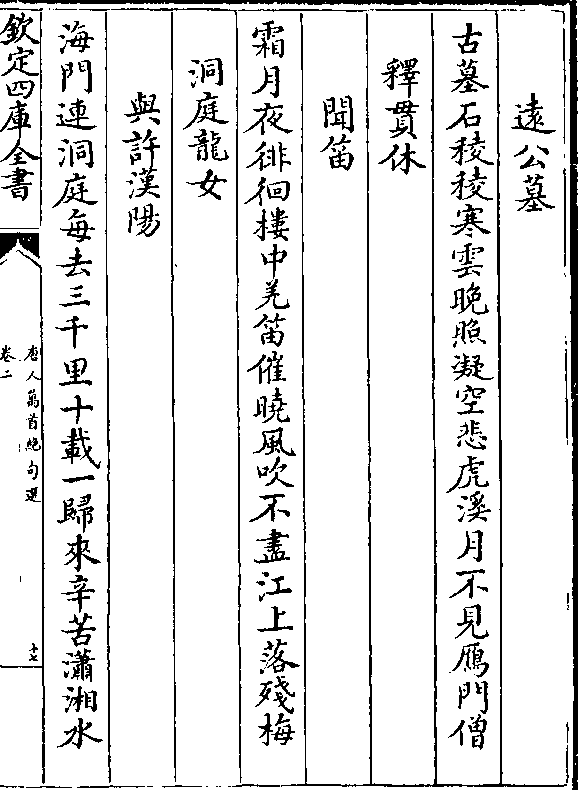 遠公墓
古墓石稜稜寒雲晚照凝空悲虎溪月不見鴈門僧
釋貫休
聞笛
霜月夜徘徊樓中羌笛催曉風吹不盡江上落殘梅
洞庭龍女
與許漢陽
海門連洞庭每去三千里十載一歸來辛苦瀟湘水
欽定四庫全書
唐人萬首絶句選
卷二
十七